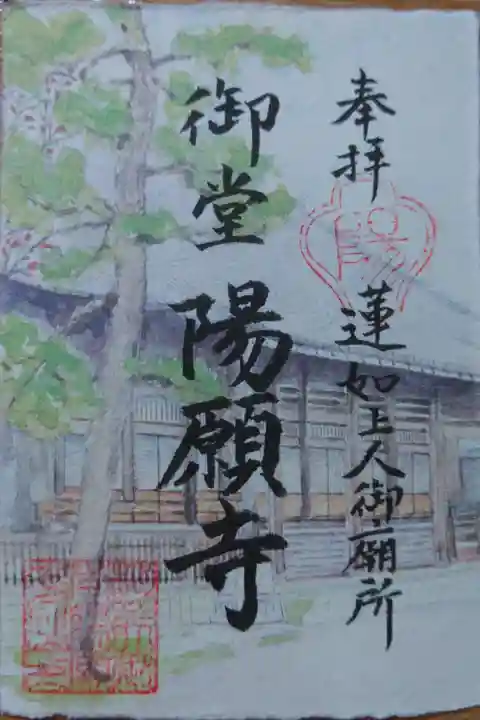 奉拝
蓮如上人御廟所
御堂 陽願寺